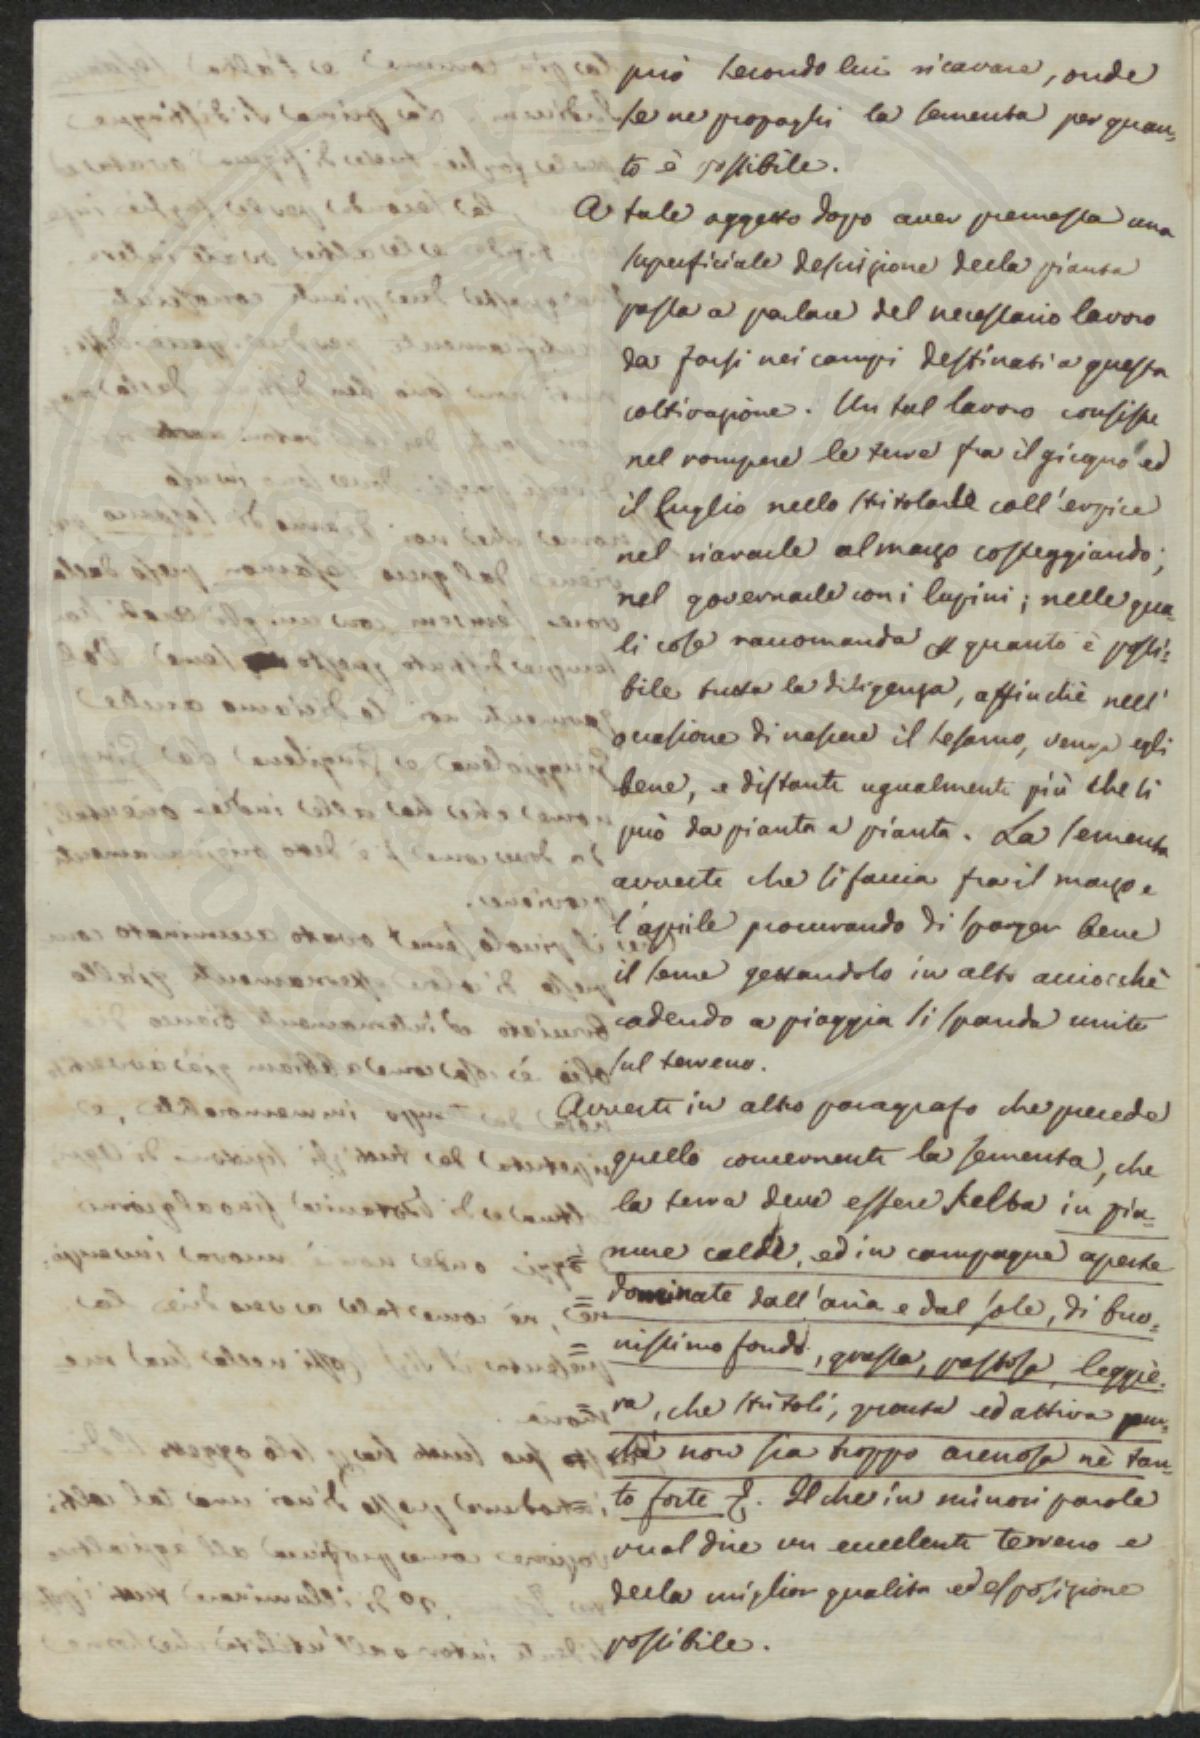 può secondo lui ricavare, onde
se ne propaghi la sementa per quan=
to è possibile.
A tale oggetto dopo aver premessa una
superficiale descrizione della pianta
passa a parlare del necessario lavoro
da farsi nei campi destinati a questa
coltivazione. Un tal lavoro consiste
nel rompere le terre fra il giugno ed
il Luglio nello stritolarle coll'erpice
nel riararle al marzo costeggiando;
nel governarle con i lupini; nelle qua=
li cose raccomanda quanto è possi=
bile tutta la diligenza, affinchè nell'
occasione di nascere il sesamo, venga egli
bene, e distante ugualmente più che si
può da pianta a pianta. La sementa
avverte che si faccia fra il marzo e
l'aprile procurando di sparger bene
il seme gettandolo in alto acciocchè
cadendo a pioggia si spanda unito
sul terreno.
Avverte in altro paragrafo che precede
quello concernente la sementa, che
la terra deve essere scelta in pia=
nure calde, ed in campagne aperte
dominate dall'aria e dal sole, di buo=
nissimo fondo, grassa, pastosa, leggiè=
ra, che stritoli, pronta ed attiva pur=
chè non sia troppo arenosa nè tan=
to forte &. Il che in minori parole
vual dire un eccellente terreno e
della miglior qualità ed esposizione
possibile.